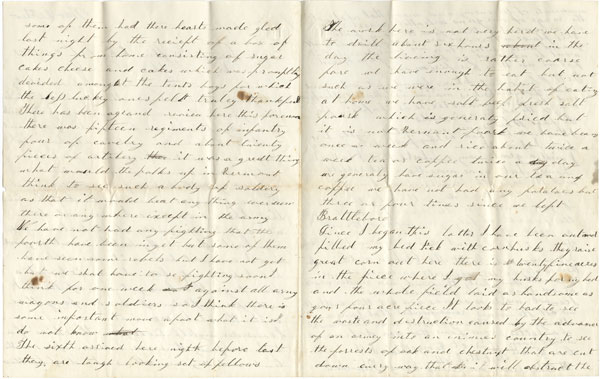 some of them had there hearts made glad
last night by the reciept of a box of
things from home consisting of sugar
cakes cheese and cakes which was promptly
devided amongst the tents boys for which
the less lucky ones felt truley thankful
There has been a grand review here this forenoon
there was fifteen regiments of infantry
four of cavelry and about twenty
pieces of artilery it was a great thing
what would the folks up in Vermont
think to see such a body of soldiers
as that it would beat any thing ever seen
there or any where except in the army
We have not had any fighting that the
fourth have been in yet but some of them
have seen some rebels but I have not yet
what we shal have to se fighting soon I
think for one week against all army
wagons and soldiers so I think there is
some important move afoot what it is I
do not know
The sixth arrived here night before last
they are tough looking set of fellows
The work here is not very hard we have
to drill about six hours in the
day the liveing is rather coarse
fare we have enough to eat but not
such as we were in the habit of eating
at home we have salt beef fresh salt
poark which is generaly fried but
it is not Vermont poark we have beans
once a week and rice about twice a
week tea or coffee twice a day
we generaly have sugar in our tea and
coffee we have not had any patatoes but
three or four times since we left
Brattleboro
Since I began this letter I have been out and
filled my bed tick with cornhusks they raise
great corn out here there is twentyfive acres
in the piece where I got my husks for my bed
and the whole field laid as handsome as
your four acre piece It looks to bad to see
the waste and destruction caused by the advance
of an army into an enimies country to see
the forrests of oak and chestnut that are cut
down every way that it will obstruct the